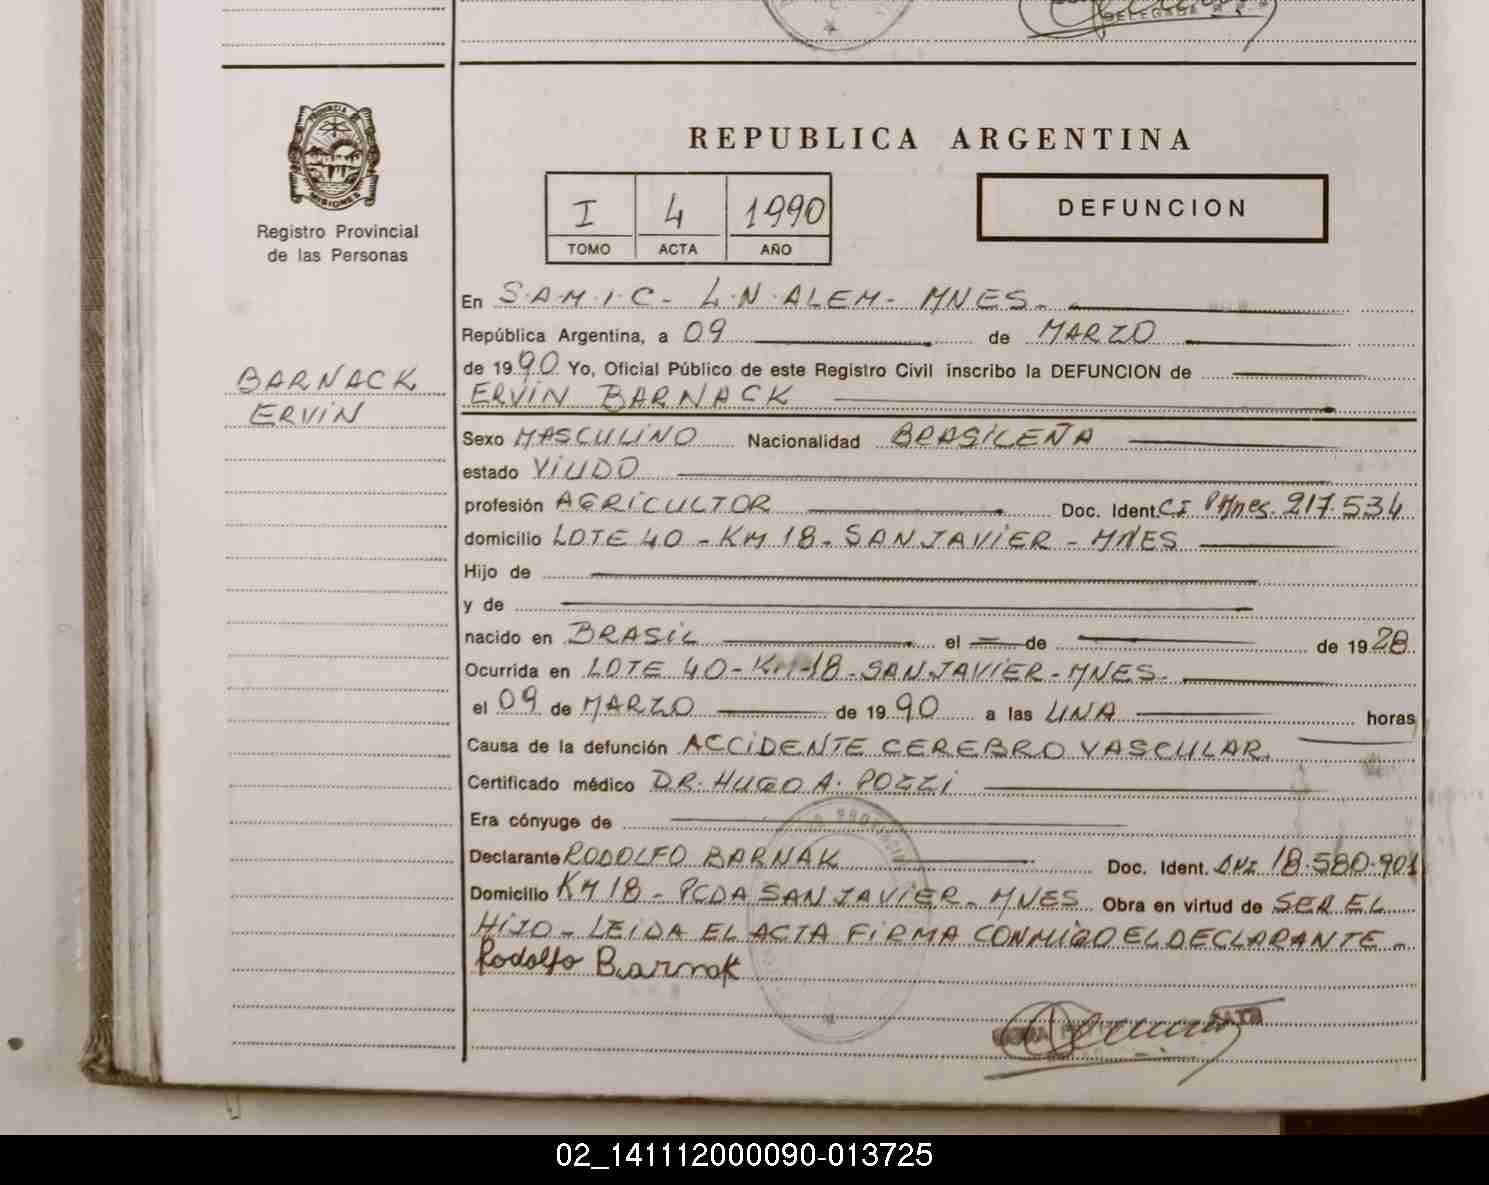 PROVINCIA DE
MISIONES
Registro Provincial
de las Personas
BARNACK
ERVIN
REPUBLICA ARGENTINA
I 4 1990
TOMO ACTA AÑO
DEFUNCION
En S.A.M.I.C- L.N.ALEM- MNES-
República Argentina, a 09 de MARZO
de 1990 Yo, Oficial Público de este Registro Civil inscribo la DEFUNCION de
ERVIN BARNACK
Sexo MASCULINO Nacionalidad BRASILEÑA
estado VIUDO
profesión AGRICULTOR Doc. Ident. CI PMnes. 217.534
domicilio LOTE 40 - KM 18 - SAN JAVIER - MNES
Hijo de
y de
nacido en BRASIL el = de de 1928
Ocurrida en LOTE 40 - KM-18 - SAN JAVIER - MNES-
el 09 de MARZO de 1990 a las UNA horas
Causa de la defunción ACCIDENTE CEREBRO VASCULAR.
Certificado médico DR. HUGO A. POZZI
Era cónyuge de
Declarante RODOLFO BARNAK Doc. Ident. DNI 18.580.901
Domicilio KM 18 - PCDA SAN JAVIER - MNES Obra en virtud de SER EL
HIJO - LEIDA EL ACTA FIRMA CONMIGO EL DECLARANTE -
Rodolfo Barnak
02_141112000090-013725